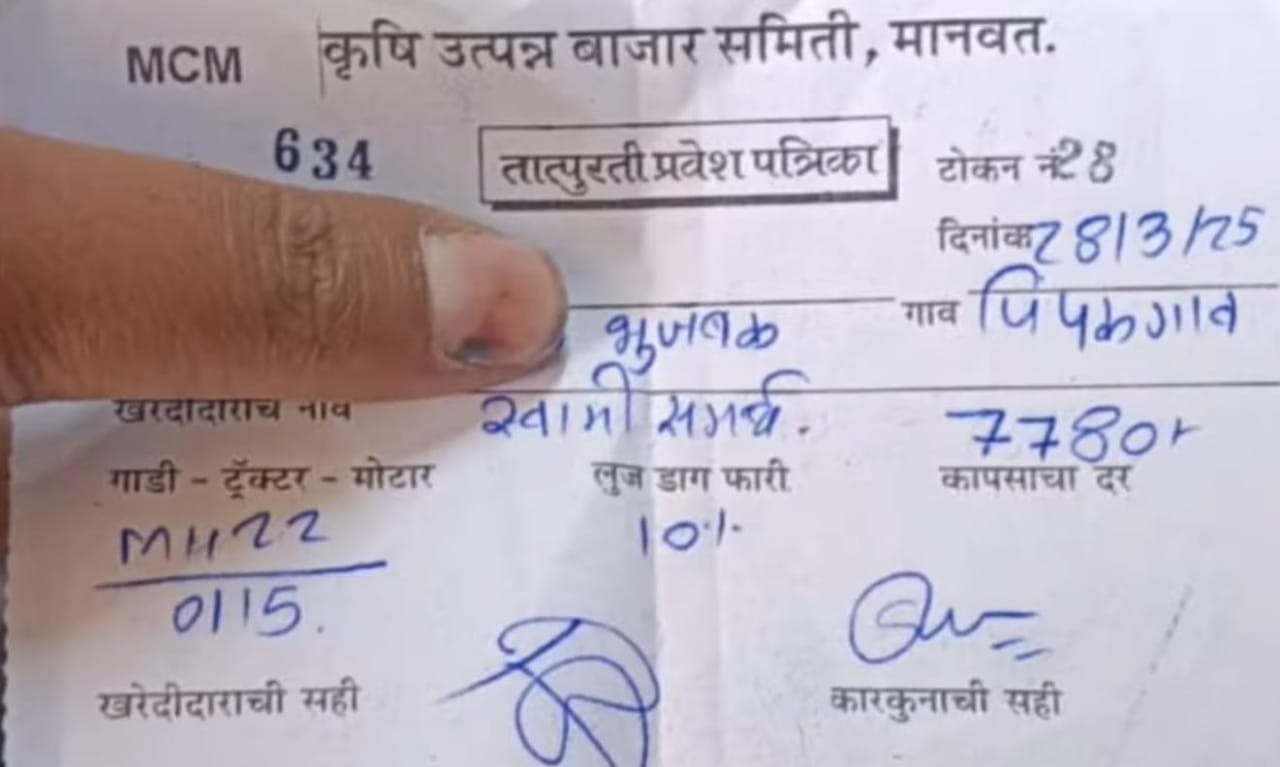 MCM कृषि उत्पन्न बाजार समिती, मानवत.
634 तात्पुरती प्रवेश पत्रिका टोकन नं 28
दिनांक 28/3/25
भुजबळ गाव पिंपळगाव
खरेदीदाराचे नाव स्वामी समर्थ. 7780/-
गाडी - ट्रॅक्टर - मोटार लुज डाग फारी कापसाचा दर
MH22 10%
0115.
खरेदीदाराची सही कारकुनाची सही